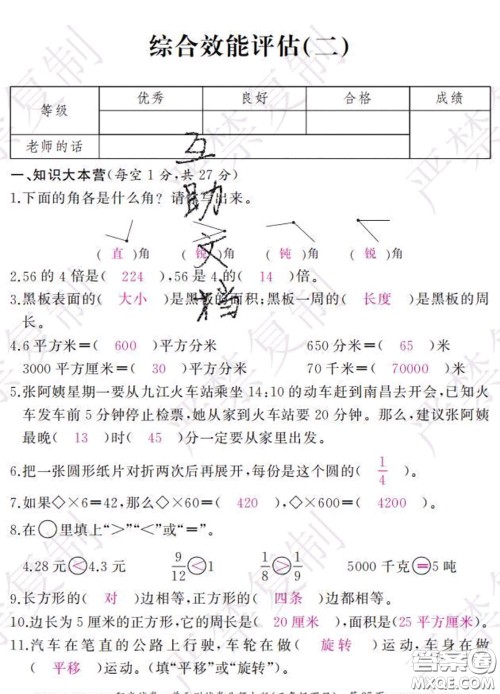 综合效能评估(二)
等级 优秀 良好 合格 成绩
老师的话
一、知识大本营(每空1分,共27分)
1.下面的角各是什么角?请 写出来。
(直)角 (锐)角 (钝)角 (锐)角
2.56的4倍是(224),56是4的(14)倍。
3.黑板表面的(大小)是黑板的面积;黑板一周的(长度)是黑板的周
长。
4.6平方米=(600)平方分米 650分米=(65)米
3000平方厘米=(30)平方分米 70千米=(70000)米
5.张阿姨星期一要从九江火车站乘坐14:10的动车赶到南昌去开会,已知火
车发车前5分钟停止检票,她从家到火车站要20分钟。那么,建议张阿姨
最晚(13)时(45)分一定要从家里出发。
6.把一张圆形纸片对折两次后再展开,每份是这个圆的(1/4)。
7.如果◇×6=42,那么◇×60=(420),◇×600=(4200)。
8.在○里填上“>”“<”或“=”。
4.28元<4.3元 9/12<1 1/8>1/9 5000千克=5吨
9.长方形的(对)边相等,正方形的(四条)边都相等。
10.边长为5厘米的正方形,它的周长是(20厘米),面积是(25平方厘米)。
11.汽车在笔直的公路上行驶,车轮在做(旋转)运动,车身在做
(平移)运动。(填“平移”或“旋转”)。
互助文档
严禁复制
答案圈
MXQE.COM